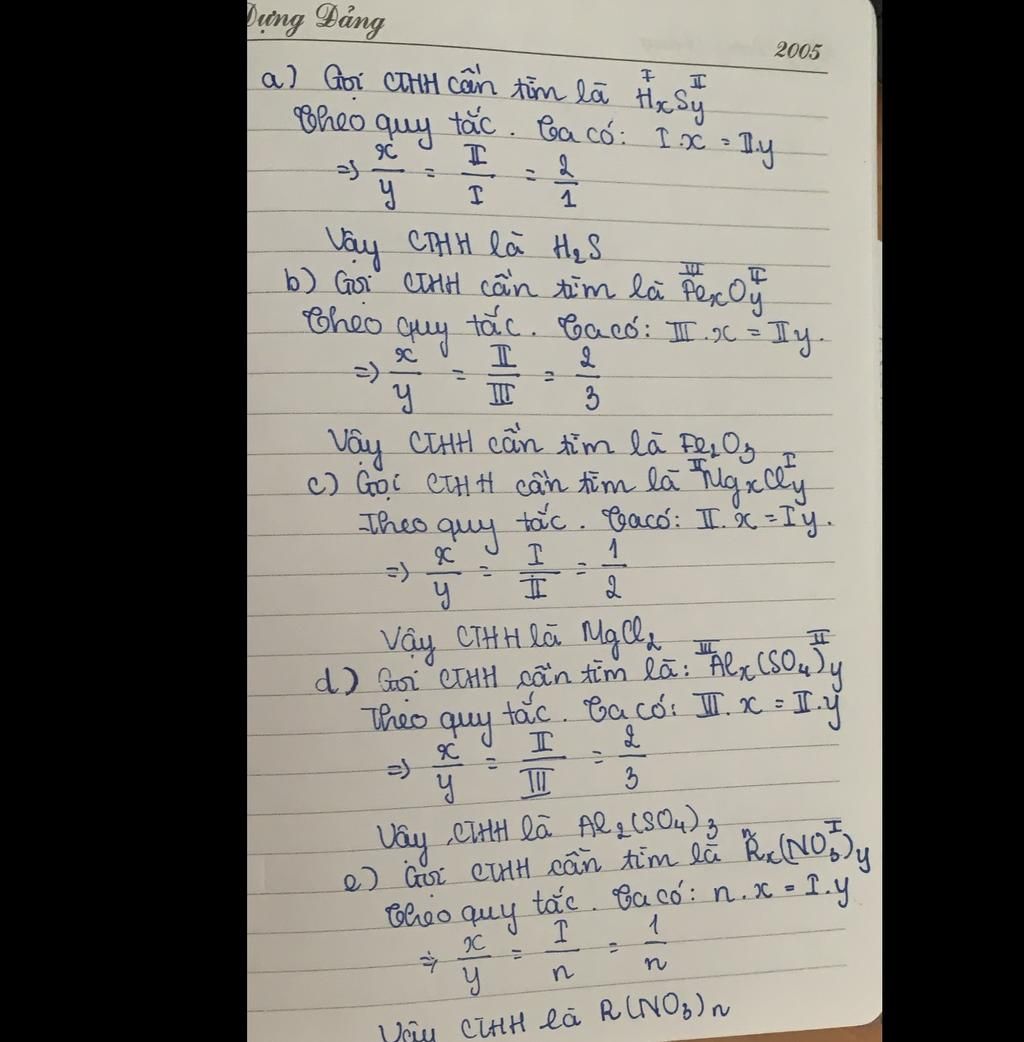 Dựng Đảng
2005
a) Gọi CTHH cần tìm là HₓSy (I, II)
Theo quy tắc. Ta có: I.x = II.y
=> x/y = II/I = 2/1
Vậy CTHH là H₂S
b) Gọi CTHH cần tìm là FeₓOy (III, II)
Theo quy tắc. Ta có: III.x = IIy.
=> x/y = II/III = 2/3
Vậy CTHH cần tìm là Fe₂O₃
c) Gọi CTHH cần tìm là MgₓCly (II, I)
Theo quy tắc. Ta có: II.x = Iy.
=> x/y = I/II = 1/2
Vậy CTHH là MgCl₂
d) Gọi CTHH cần tìm là: Alₓ(SO₄)y (III, II)
Theo quy tắc. Ta có: III.x = II.y
=> x/y = II/III = 2/3
Vậy CTHH là Al₂(SO₄)₃
e) Gọi CTHH cần tìm là Rₓ(NO₃)y (n, I)
Theo quy tắc. Ta có: n.x = I.y
=> x/y = I/n = 1/n
Vậy CTHH là R(NO₃)n